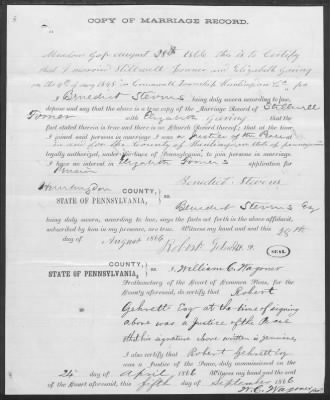 COPY OF MARRIAGE RECORD.
Meadow Gap August 28th 1866 this is to Certify
that I married Stillwell and Elizabeth
on the 9th of may 1848 in Cromwell Township Huntingdon Co Pa
I Benedict Stevens being duly sworn according to law,
depose and say that the above is a true copy of the Marriage Record of Stillwell
with Elizabeth that the
fact stated therein is true and there is no Church (Record thereof;) that at the time,
I joined said persons in marriage I was a Justice of the Peace
in and for the County of Huntingdon and state of pennsylvania
legally authorized, under the laws of Pennsylvania, to join persons in marriage.
I have no interest in Elizabeth application for
Pension
Benedict Stevens
Huntingdon COUNTY,
STATE OF PENNSYLVANIA, ss.
Benedict Stevens Esq
being duly sworn, according to law, says the facts set forth in the above affidavit,
subscribed by him in my presence, are true. Witness my hand and seal this 28th
day of August 1866
Robert J. P.
SEAL
COUNTY,
STATE OF PENNSYLVANIA, ss.
I, William C. Wagoner
Prothonotary of the Court of Common Pleas, for the
County aforesaid, do certify that Robert
Esq at the time of signing
above was a Justice of the Peace
that his signature above written is genuine.
I also certify that Robert
was a Justice of the Peace, duly commissioned on the
24 day of April 1866 Witness my hand and the seal
of the Court aforesaid, this fifth day of September 1866
W. C. Wagoner